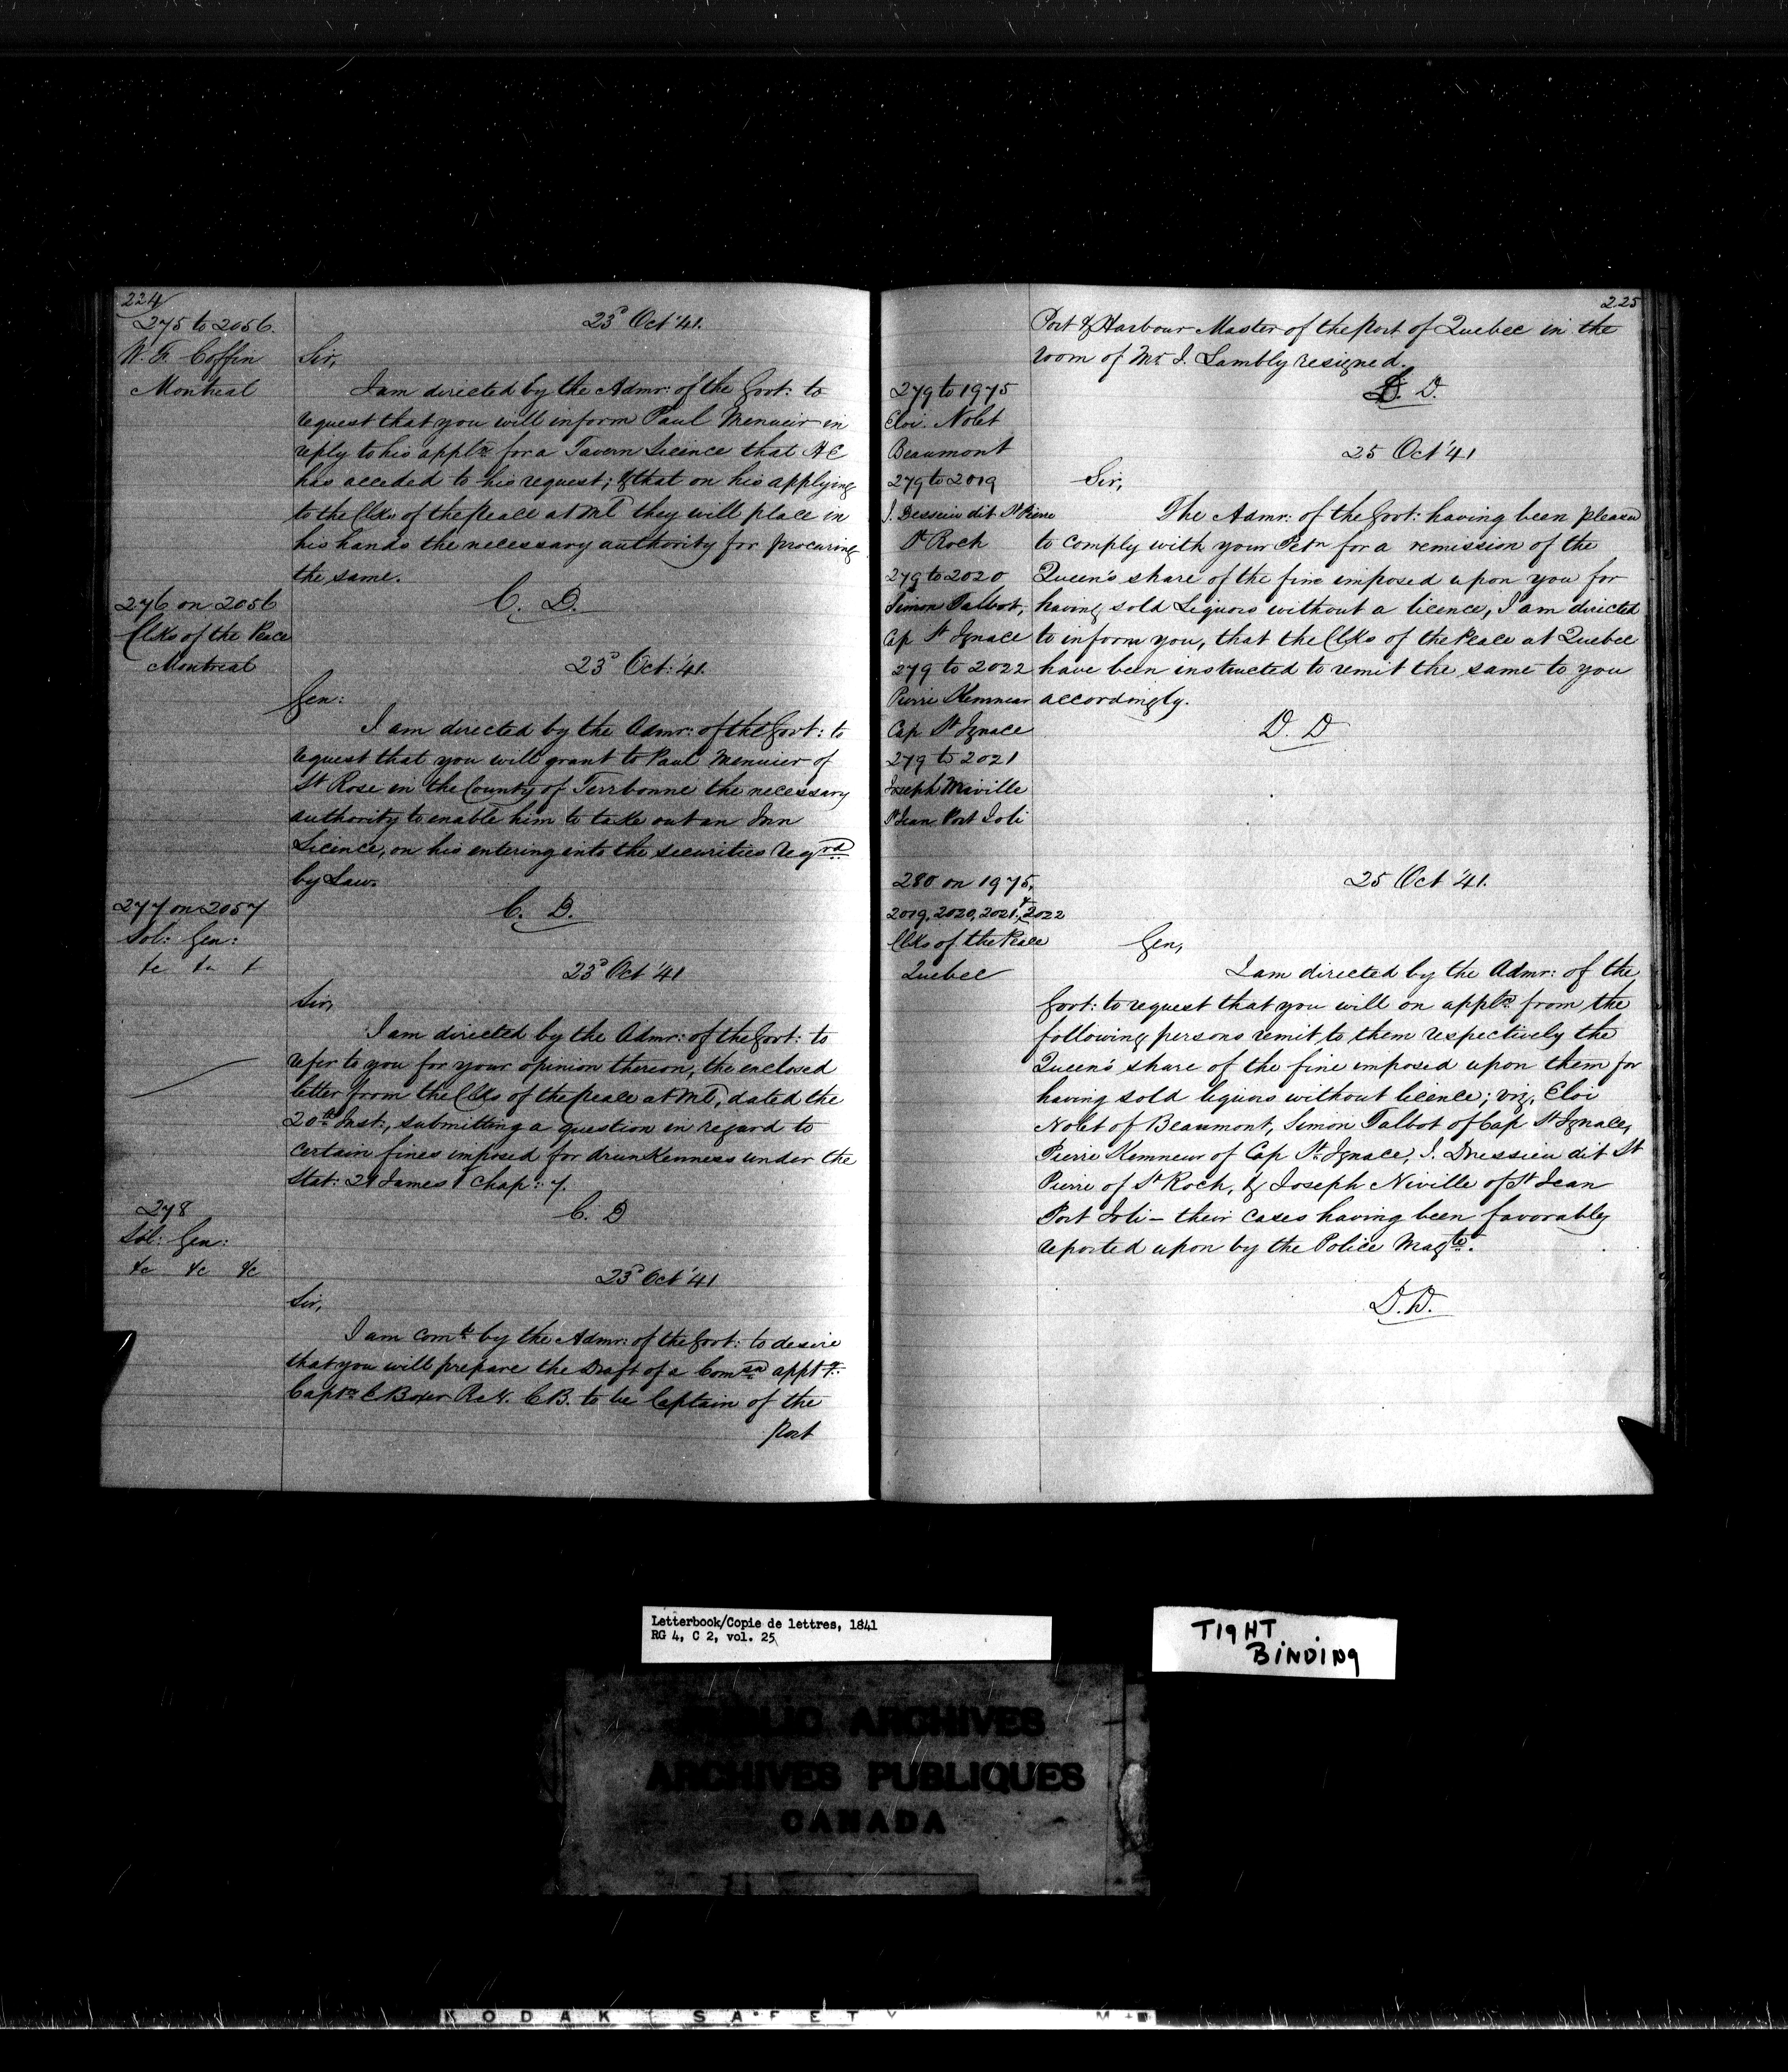 224
275 to 2056
W. F. Coffin
Montreal
23d Oct '41.
Sir,
I am directed by the Admr: of the Govt: to
request that you will inform Paul Menuier in
reply to his appln for a Tavern Licence that H E
has acceded to his request; & that on his applying
to the Clks of the Peace at Ml they will place in
his hands the necessary authority for procuring
the same.
C. D.
276 on 2056
Clks of the Peace
Montreal
23d Oct: '41.
Gen:
I am directed by the Admr: of the Govt: to
request that you will grant to Paul Menuier of
St Rose in the County of Terrbonne the necessary
authority to enable him to take out an Inn
Licence, on his entering into the securities reqrd
by Law.
C. D.
277 on 2057
Sol: Gen:
&c &c &
23d Oct '41
Sir,
I am directed by the Admr: of the Govt: to
refer to you for your opinion thereon, the enclosed
letter from the Clks of the Peace at Ml, dated the
20th Inst:, submitting a question in regard to
certain fines imposed for drunkenness under the
Stat: 21 James 1 Chap: 7.
C. D
278
Sol: Gen:
&c &c &c
23d Oct '41
Sir,
I am comd by the Admr: of the Govt: to desire
that you will prepare the Draft of a Comsn appt
Captn E Boxer R.N. C.B. to be Captain of the
Port
225
Port & Harbour Master of the Port of Quebec in the
room of Mr. J. Lambly resigned.
D. D.
279 to 1975
Eloi Nolet
Beaumont
279 to 2019
J. Dessein dit St Pierre
St Roch
279 to 2020
Simon Talbot,
Cap St Ignace
279 to 2022
Pierre Kemneur
Cap St Ignace
279 to 2021
Joseph Miville
St Jean Port Joli
25 Oct '41
Sir,
The Admr: of the Govt: having been pleased
to comply with your Petn for a remission of the
Queen's share of the fine imposed upon you for
having sold Liquors without a licence, I am directed
to inform you, that the Clks of the Peace at Quebec
have been instructed to remit the same to you
accordingly.
D. D
280 on 1975,
2019, 2020, 2021, & 2022
Clks of the Peace
Quebec
25 Oct '41.
Gen,
I am directed by the Admr: of the
Govt: to request that you will on appln from the
following persons remit to them respectively the
Queen's share of the fine imposed upon them for
having sold liquors without licence; viz, Eloi
Nolet of Beaumont, Simon Talbot of Cap St Ignace,
Pierre Kemneur of Cap St Ignace, J. Dressein dit St
Pierre of St Roch, & Joseph Niville of St Jean
Port Joli – their cases having been favorably
reported upon by the Police Magte.
D. D.
Letterbook/Copie de lettres, 1841
RG 4, C 2, vol. 25
TIGHT
BINDING
PUBLIC ARCHIVES
ARCHIVES PUBLIQUES
CANADA
KODAK SAFETY